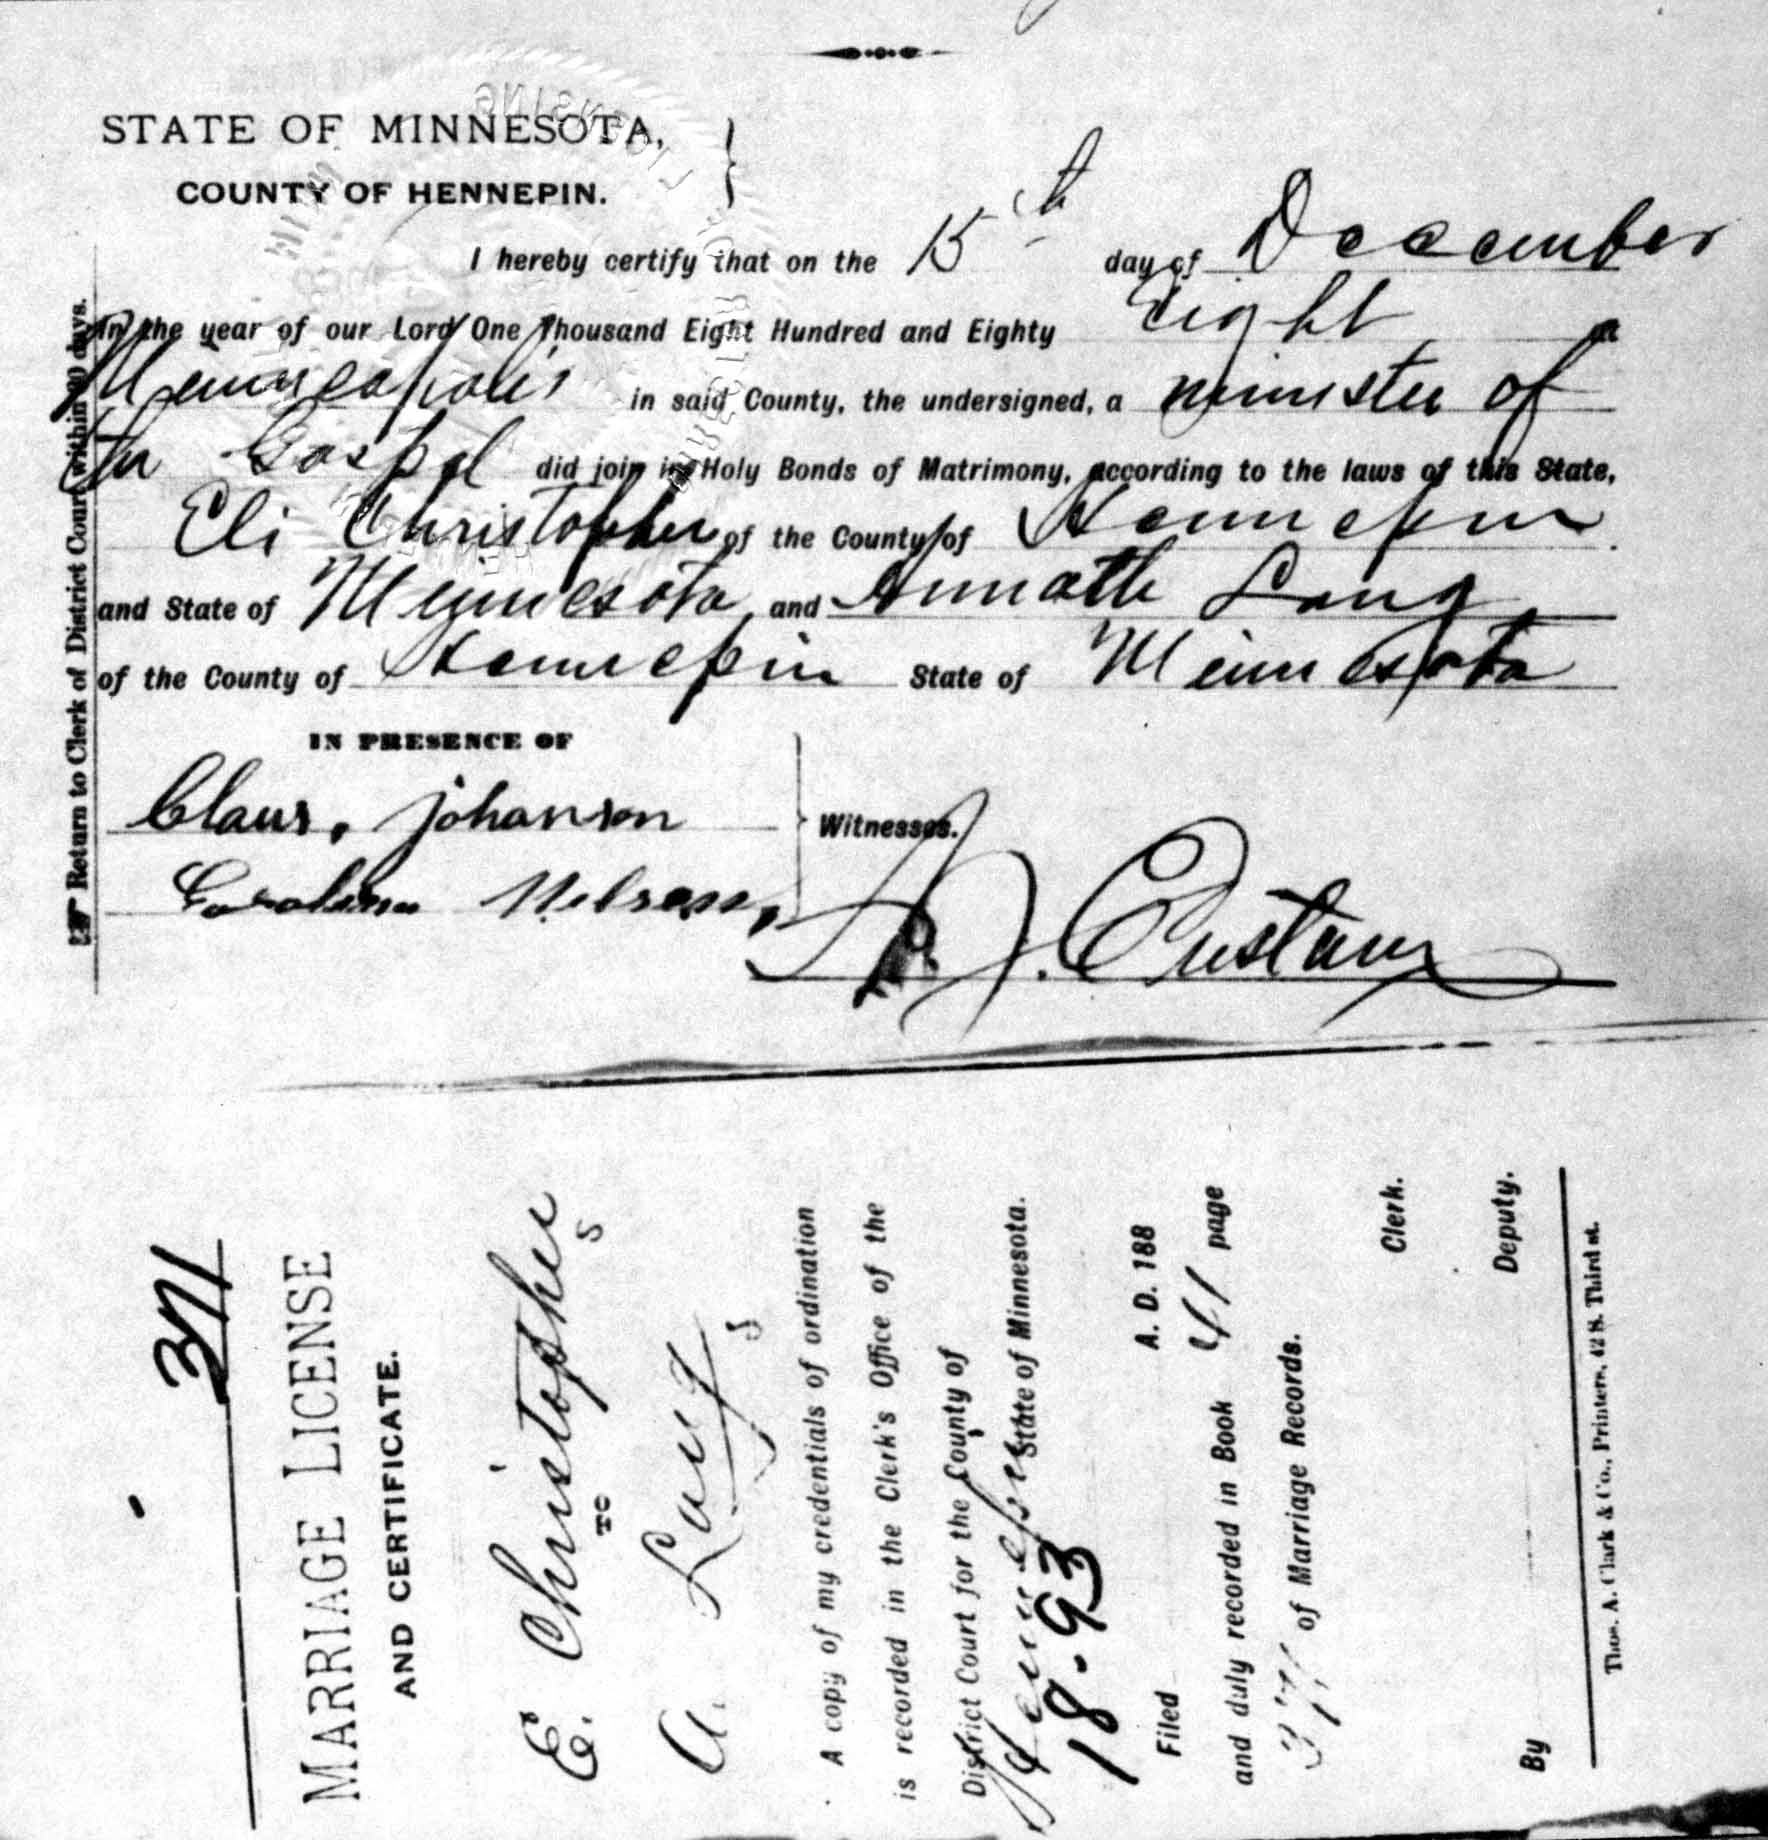 STATE OF MINNESOTA,
COUNTY OF HENNEPIN.
I hereby certify that on the 15th day of December
in the year of our Lord One Thousand Eight Hundred and Eighty Eight at
Minneapolis in said County, the undersigned, a minister of
the Gospel did join in Holy Bonds of Matrimony, according to the laws of this State,
Eli Christopher of the County of Hennepin
and State of Minnesota and Annath Lang
of the County of Hennepin State of Minnesota
IN PRESENCE OF
Claus, Johanson
Witnesses.
Carolina Nelson,
Return to Clerk of District Court within 30 days.
371
MARRIAGE LICENSE
AND CERTIFICATE.
E. Christopher
S
TO
A. Lang
S
A copy of my credentials of ordination
is recorded in the Clerk's Office of the
District Court for the County of
Hennepin State of Minnesota.
18-93
Filed A. D. 188
and duly recorded in Book 41 page
371 of Marriage Records.
Clerk.
By Deputy.
Thos. A. Clark & Co., Printers, 42 S. Third st.